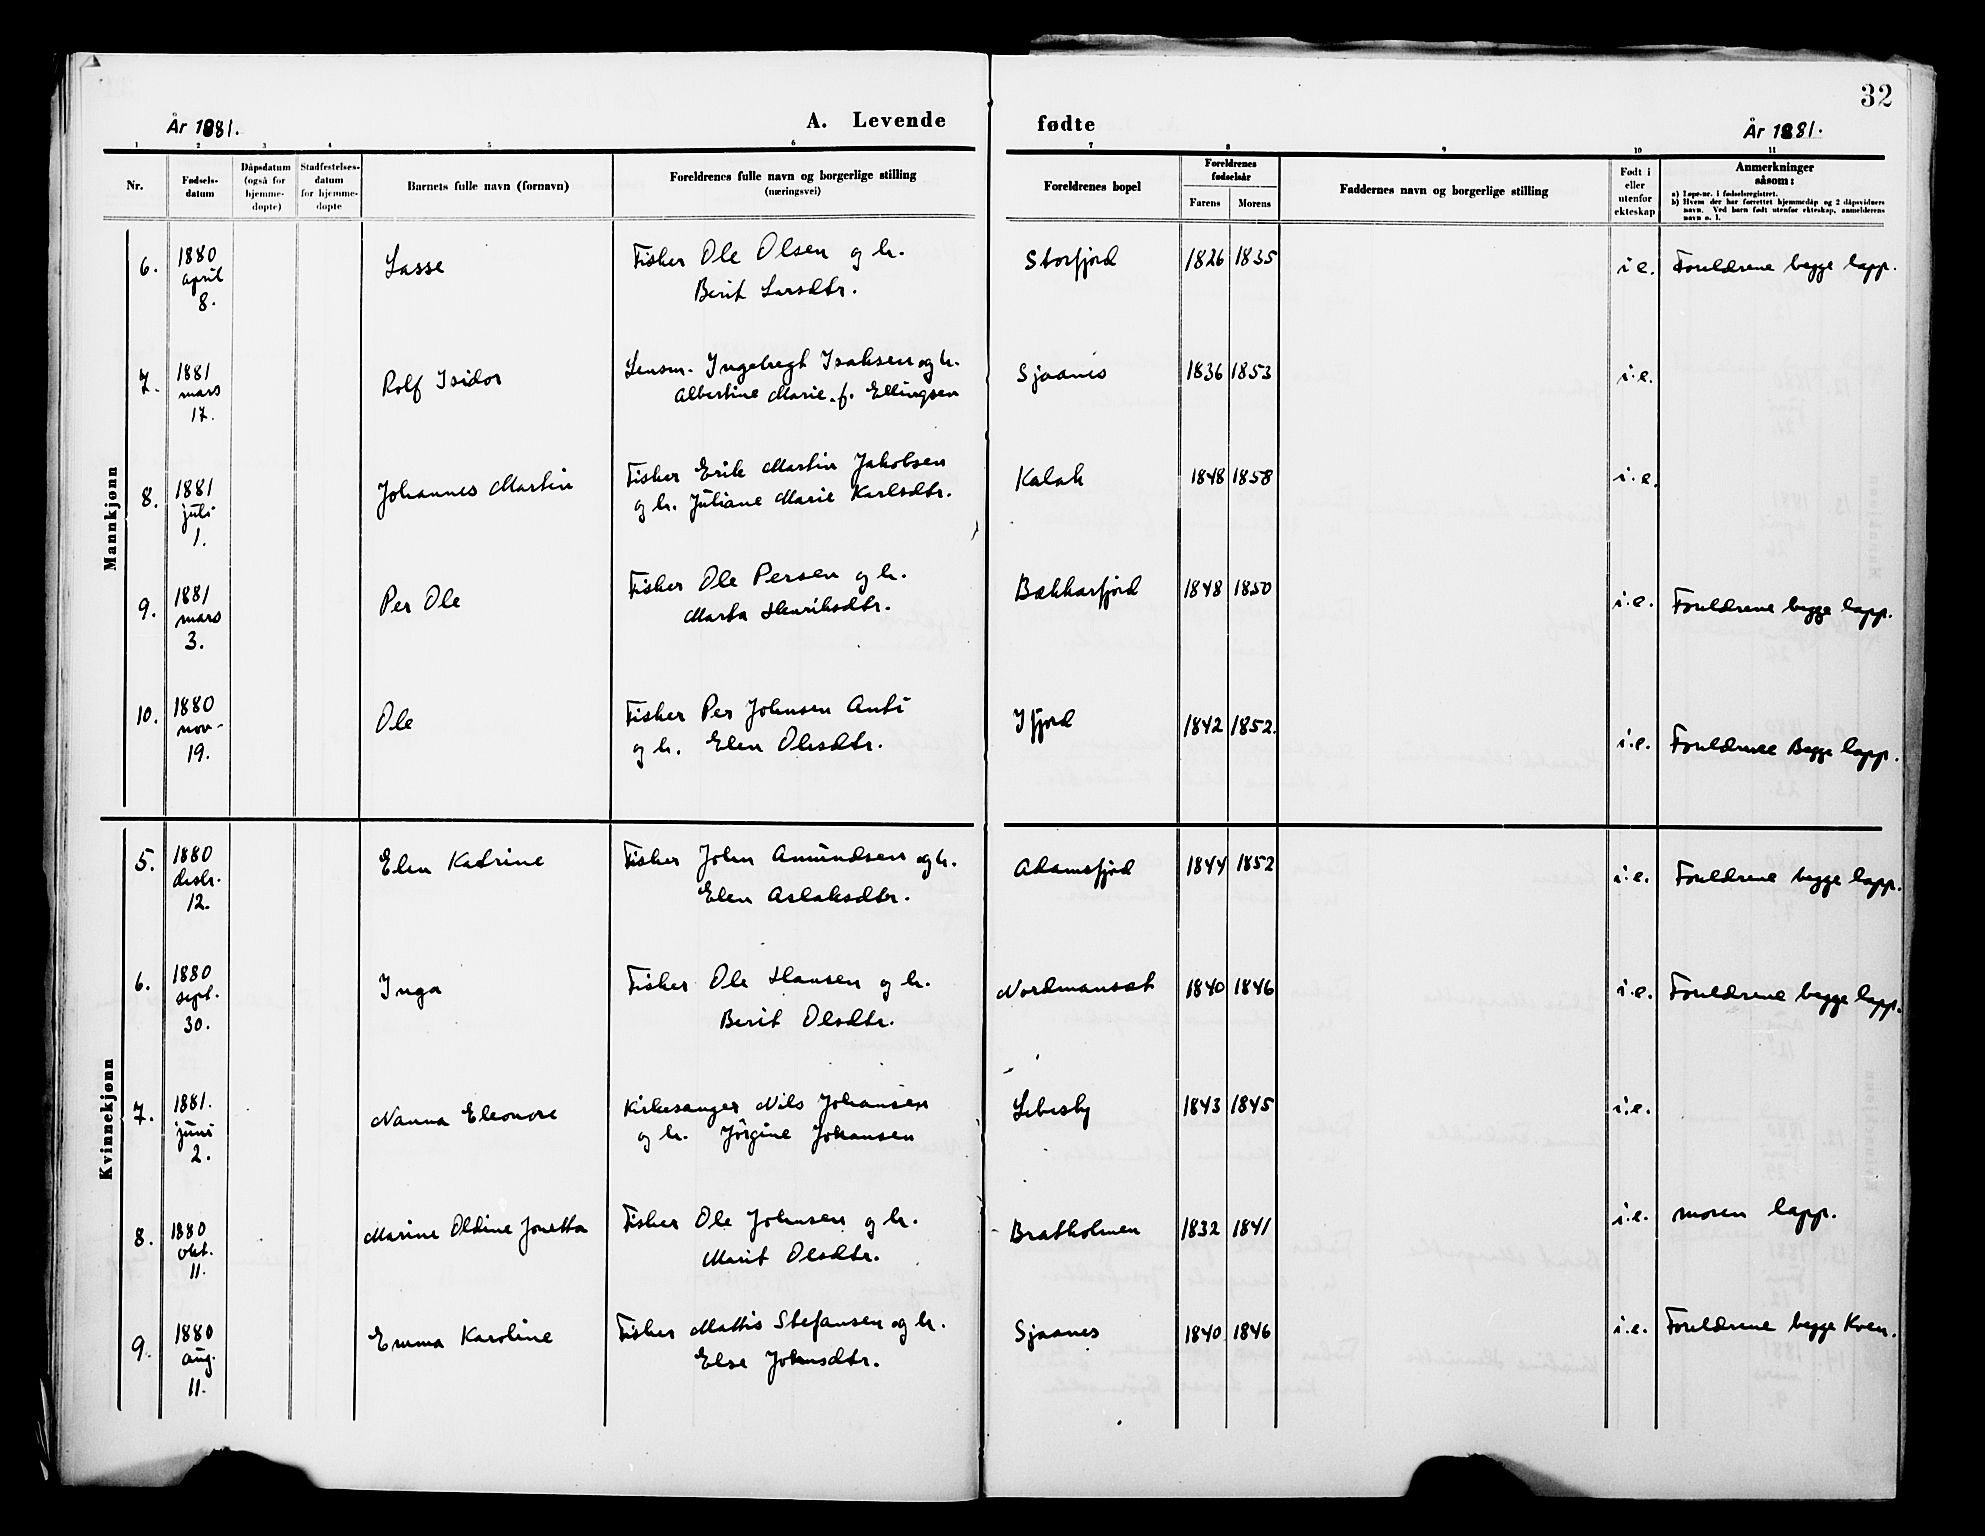 32
År 1881.
A. Levende fødte
År 1881.
1 2 3 4 5 6 7 8 9 10 11
Nr.
Fødsels-
datum
Dåpsdatum
(også for
hjemme-
døpte)
Stadfestelses-
datum
for hjemme-
døpte
Barnets fulle navn (fornavn)
Foreldrenes fulle navn og borgerlige stilling
(næringsvei)
Foreldrenes bopel
Foreldrenes
fødselsår
Farens Morens
Faddernes navn og borgerlige stilling
Født i
eller
utenfor
ekteskap
Anmerkninger
såsom:
a) Løpe-nr. i fødselsregistret.
b) Hvem der har forrettet hjemmedåp og 2 dåpsvidners
navn. Ved barn født utenfor ekteskap, anmelderens
navn o. l.
Mannkjønn
6. 1880 april 8. Lasse Fisker Ole Olsen og h. Storfjord 1826 1835 i e. Foreldrene begge lapp.
Berit Larsdtr.
7. 1881 mars 17. Rolf Isidor Lensm. Ingebregt Isaksen og h. Sjaanes 1836 1853 i.e.
Albertine Marie. f. Ellingsen
8. 1881 juli 1. Johannes Martin Fisker Erik Martin Jakobsen Kalak 1848 1858 i.e.
og h. Juliane Marie Karlsdtr.
9. 1881 mars 3. Per Ole Fisker Ole Persen og h. Bekkarfjord 1848 1850 i.e. Foreldrene begge lapp.
Marta Henriksdtr.
10. 1880 nov. 19. Ole Fisker Per Johnsen Anti Ifjord 1842 1852. i.e. Foreldrene Begge lapp.
og h. Elen Olesdtr.
Kvinnekjønn
5. 1880 desbr. 12. Elen Katrine Fisker John Amundsen og h. Adamsfjord 1844 1852 i.e. Foreldrene begge lapp.
Elen Aslaksdtr.
6. 1880 sept. 30. Inga Fisker Ole Hansen og h. Nordmanset 1840 1846 i.e. Foreldrene begge lapp.
Berit Olsdtr.
7. 1881. juni 2. Nanna Eleonore Kirkesanger Nils Johansen Lebesby 1843 1845 i.e.
og h. Jörgine Johansen
8. 1880 okt. 11. Marine Oldine Jonetta Fisker Ole Johnsen og h. Bratholmen 1832 1841 i.e. moren lapp.
Marit Olsdtr.
9. 1880 aug. 11. Emma Karoline Fisker Mattis Stefansen og h. Sjaanes 1840 1846 i.e. Foreldrene begge Kven.
Else Johnsdtr.